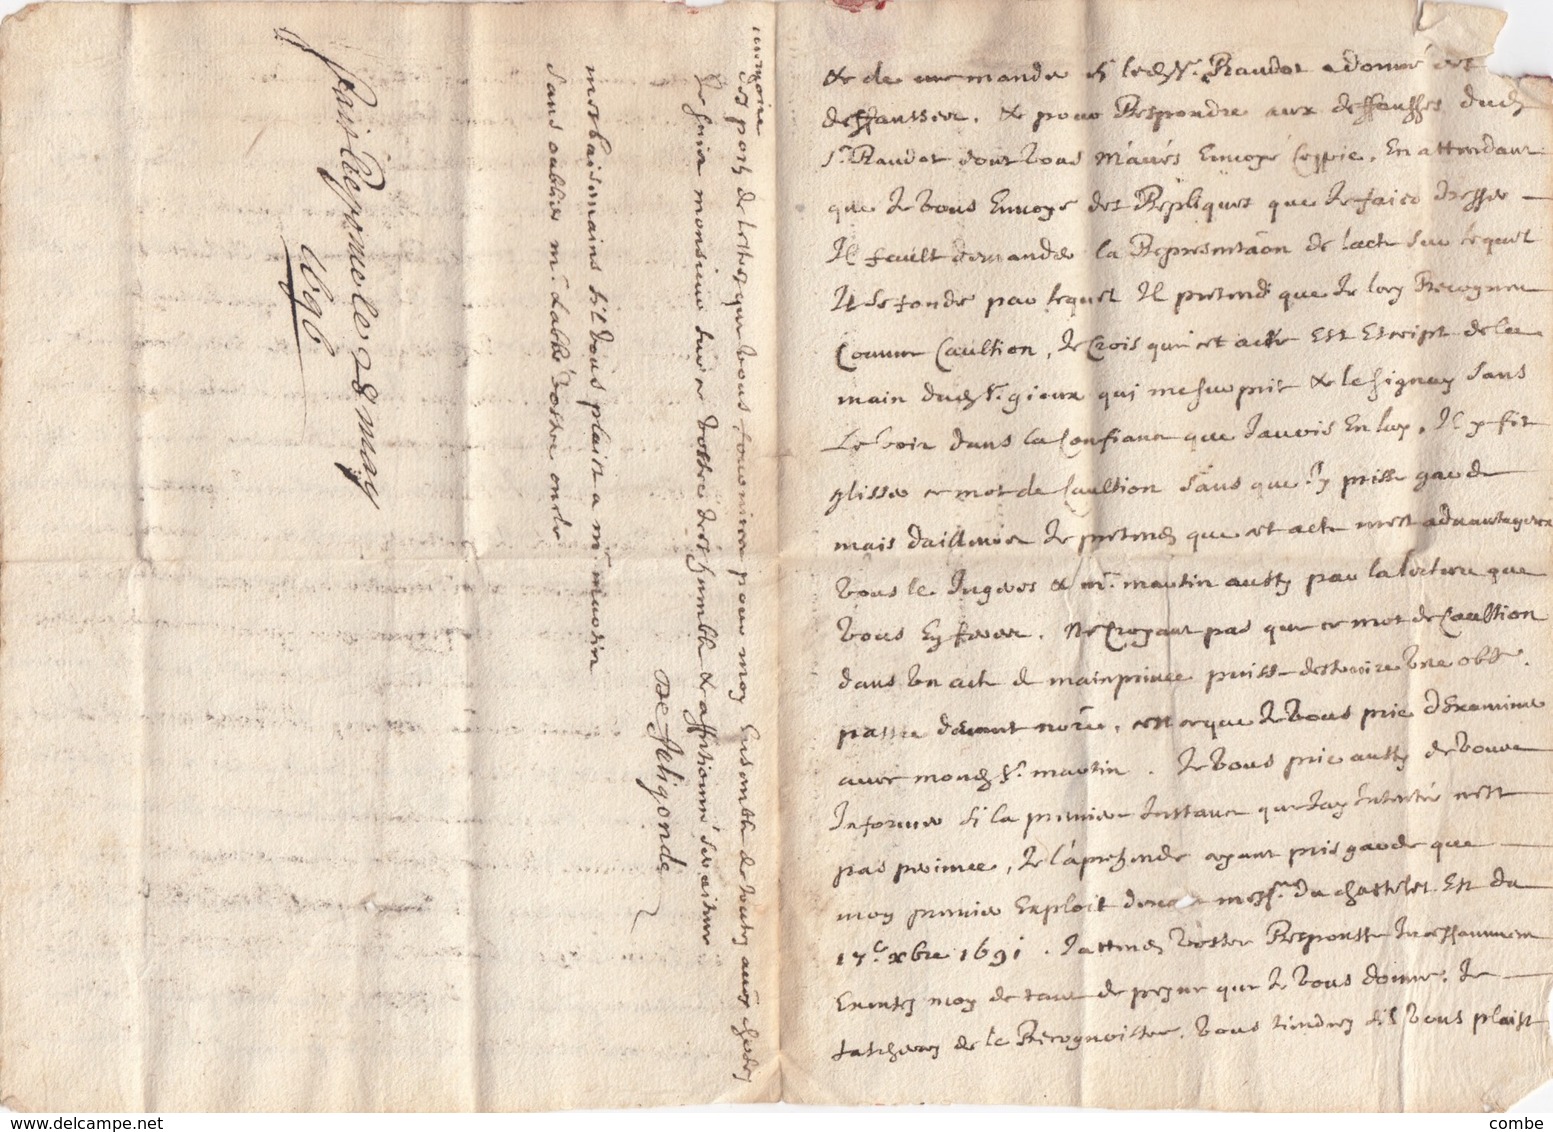 & de me mander si led. Sr. Raudot a donné des
deffausses. & pour Respondre aux deffausses dud.
Sr. Raudot dont vous m'avés Envoyé Coppie, En attendant
que Je vous Envoye des Repliques que Je faics dresser
Il fault demander la Represmtaon de lacte sur lequel
Il se fonde par lequel Il pretend que Je luy Recognu
Comme Caultion, Je Crois que cet acte Est Escript de la
main dud. Sr. gioux qui me surprit & le signay sans
Le voir dans la Confiance que Javois En luy, Il y fit
glisser ce mot de Caultion sans que Jy prisse garde
mais dailleurs Je pretends que cet acte mest advantageux
vous le Jugeres & mr. martin aussy par la lecture que
vous En feres. Ne Croyant pas que ce mot de Caultion
dans un acte de main privee puisse destruire une obl.
passee devant nore, cest ce que Je vous prie dExaminer
avec mond. Sr. martin. Je vous prie aussy de vous
Informer si la premiere Instance que Jay Intentée nest
pas perimee, Je l'aprehende ayant pris garde que
mon premier Exploit devant messrs. du chastelet Est du
17e. xbre 1691. Jattends vostre Responsse Incessamment
Excusez moy de tant de peyne que Je vous donne. Je
tascheray de le Recognoistre. vous tiendrez sil vous plaist
memoire
des ports de lettres que vous fournires pour moy Ensemble de touts autres
Je suis monsieur surer vostre tres humble & affectionné serviteur
De Feligonde
mes baisemains s'il vous plaist a mr. martin
sans oublier mr. Labbé vostre oncle
28 may
1696
www.delcampe.net
combe